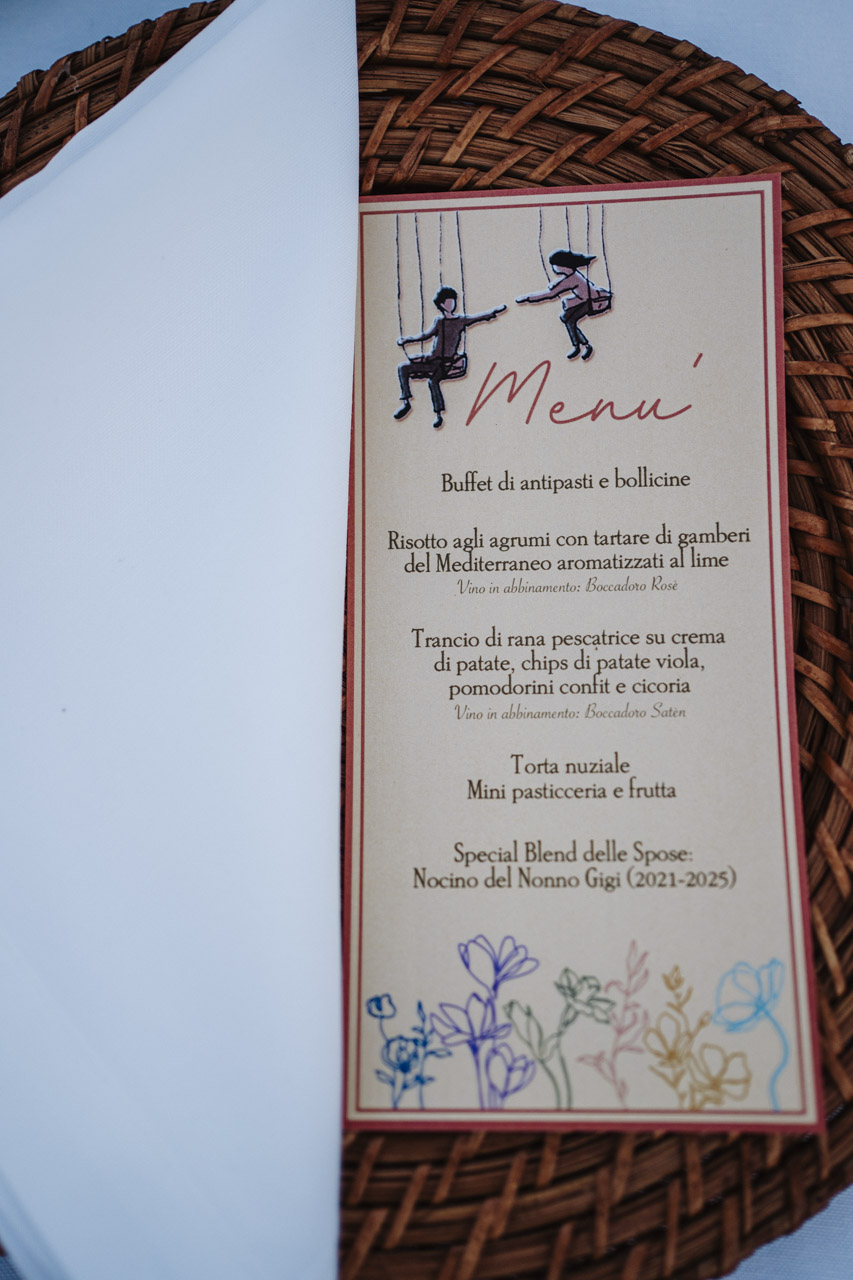 Menu'
Buffet di antipasti e bollicine
Risotto agli agrumi con tartare di gamberi
del Mediterraneo aromatizzati al lime
Vino in abbinamento: Boccadoro Rosè
Trancio di rana pescatrice su crema
di patate, chips di patate viola,
pomodorini confit e cicoria
Vino in abbinamento: Boccadoro Satèn
Torta nuziale
Mini pasticceria e frutta
Special Blend delle Spose:
Nocino del Nonno Gigi (2021-2025)